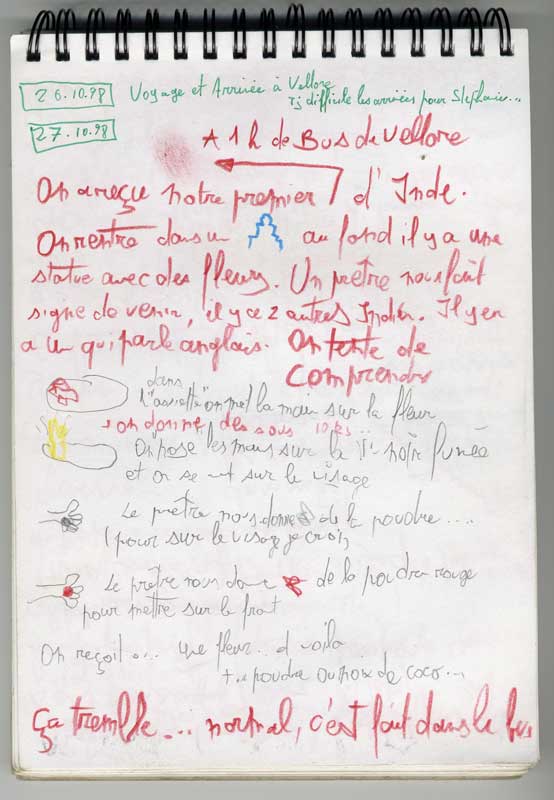 26.10.98 Voyage et Arrivée à Vellore
Tj difficile les arrivées pour Stephanie...
27.10.98
A 1 h de Bus de Vellore
On a reçu notre premier d'Inde.
On rentre dans un au fond il y a une
statue avec des fleurs. Un prêtre nous fait
signe de venir, il y a 2 autres Indien. Il y en
a un qui parle anglais. On tente de
comprendre
dans
l'"assiette" on met la main sur la fleur
+ on donne des sous 10 rs..
On pose les mains sur la fumée
et on se met sur le visage
Le prêtre nous donne de la poudre....
(pour sur le visage je crois)
Le prêtre nous donne de la poudre rouge
pour mettre sur le front
On reçoit... une fleur.. et voila
+.. poudre ou noix de coco...
Ça tremble... normal, c'est fait dans le bus